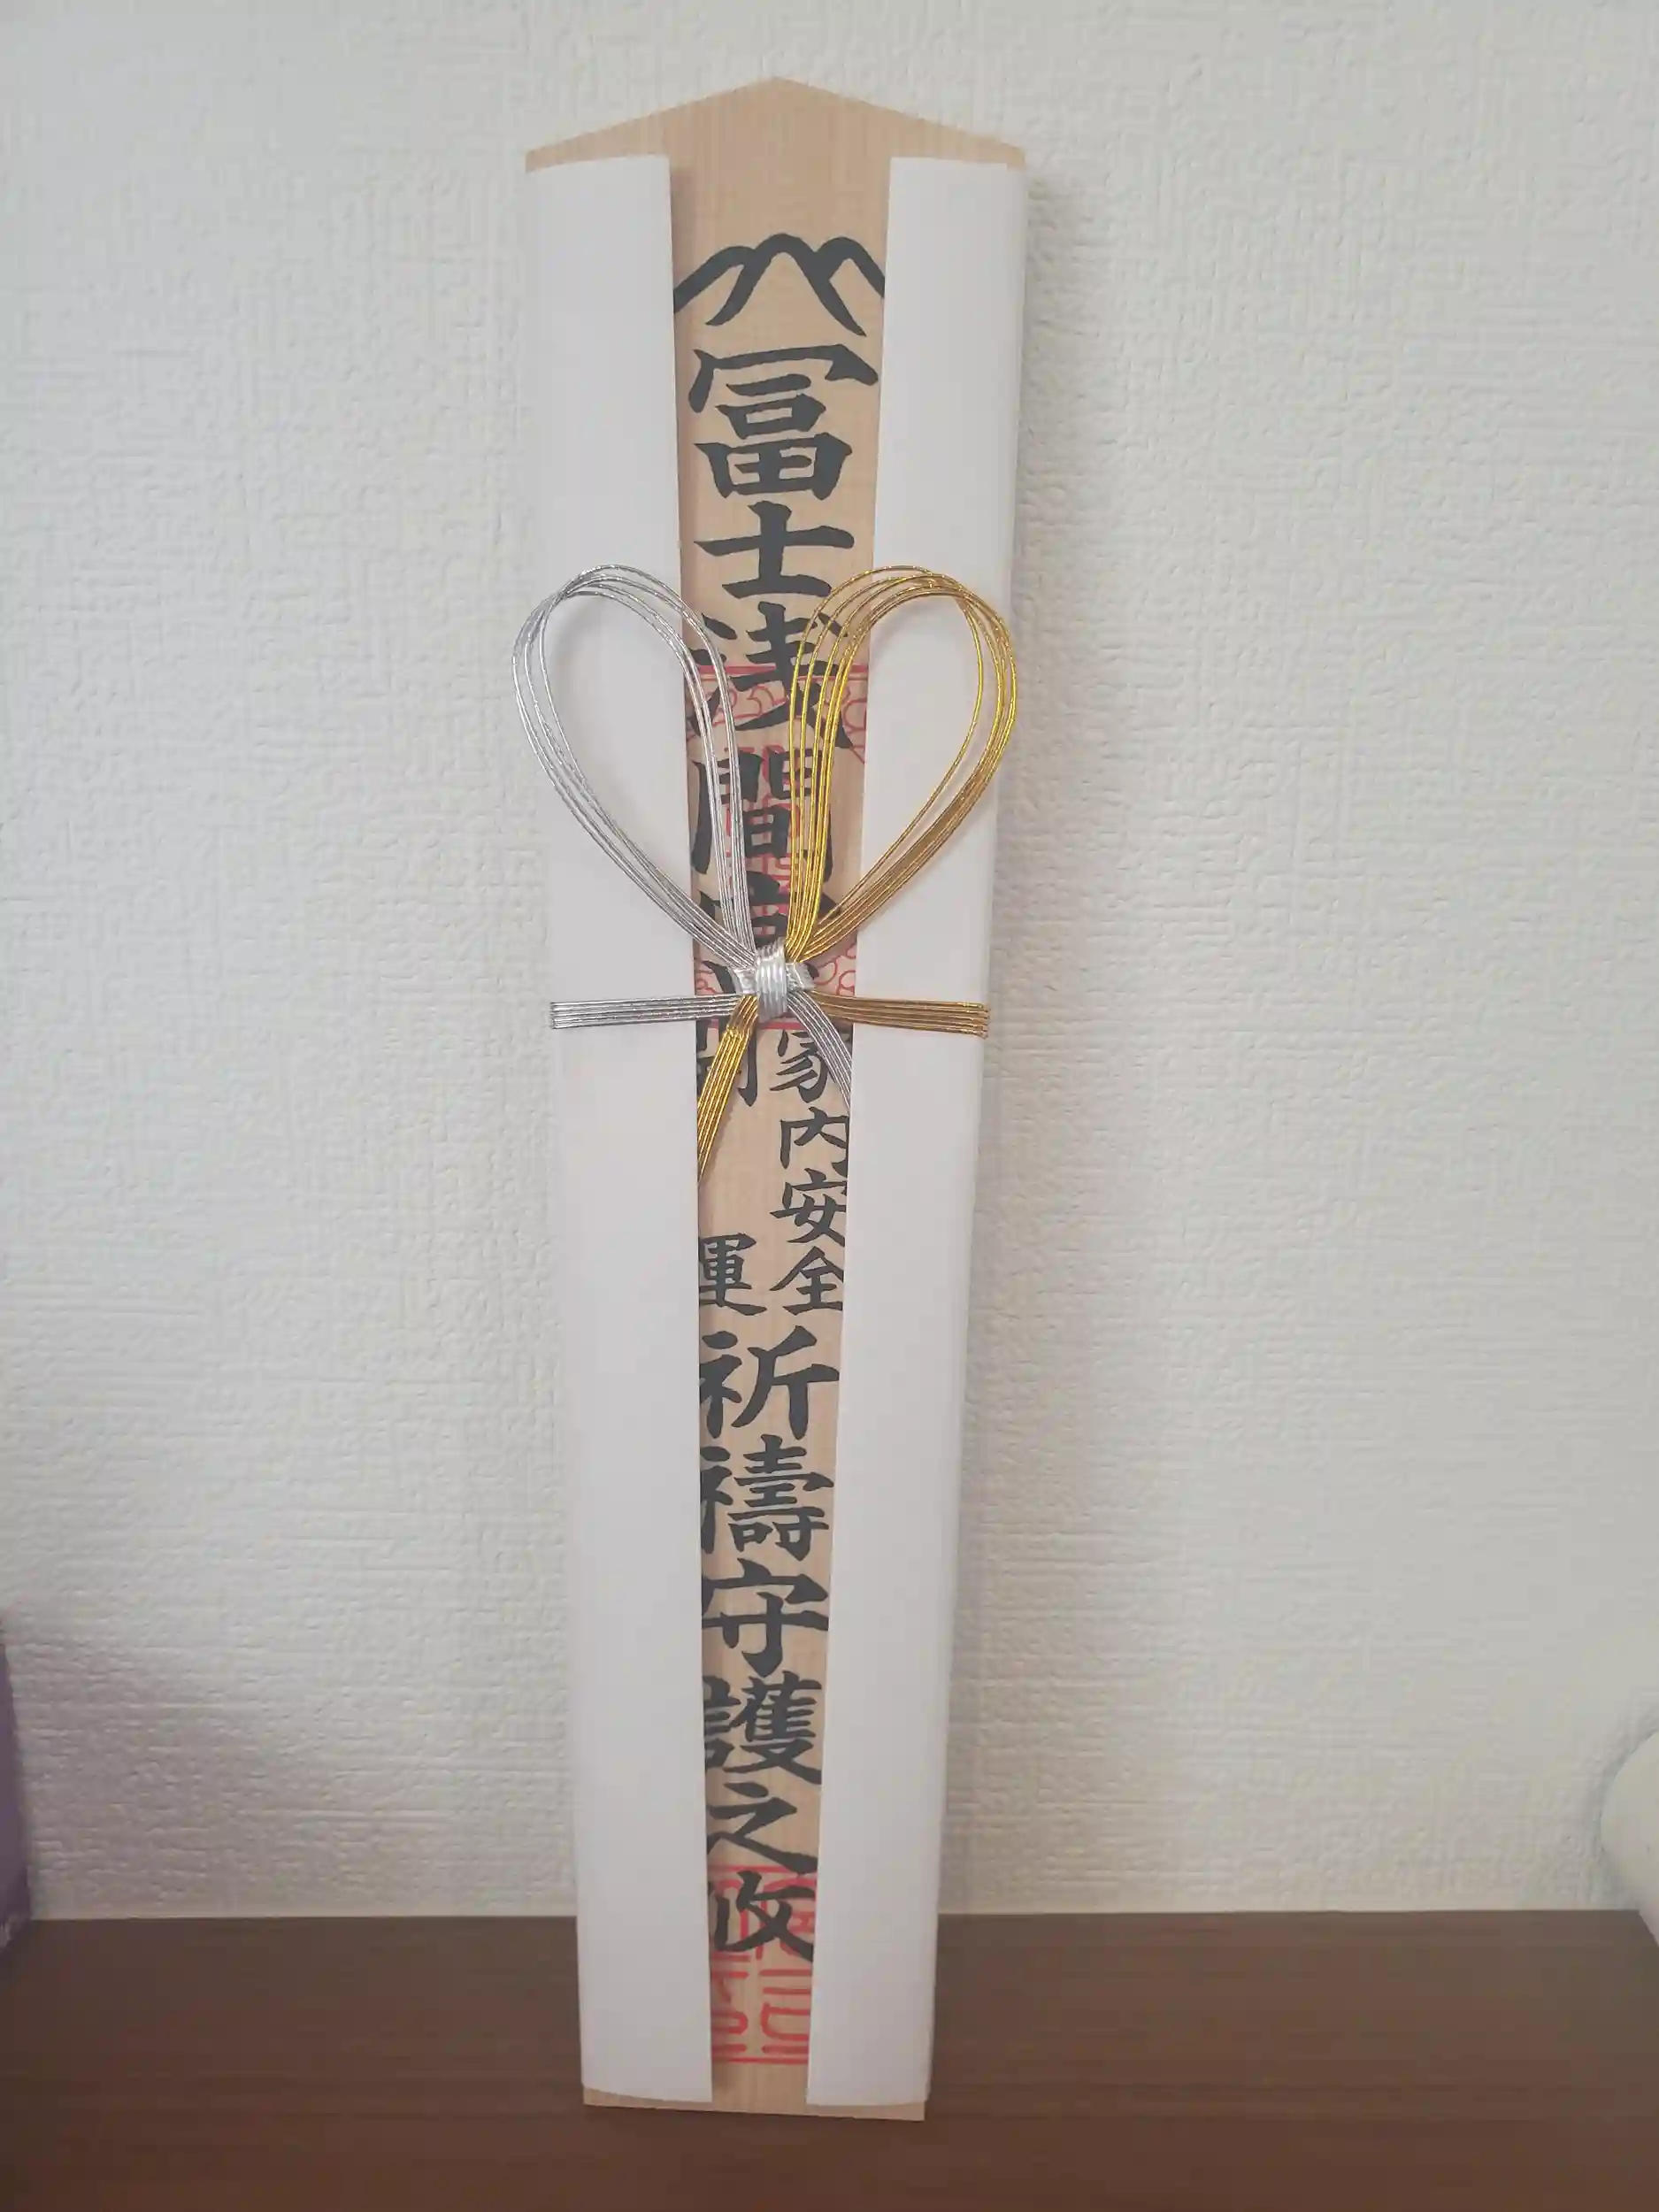 冨士浅間宮
家内安全
開運
祈禱守護之攸